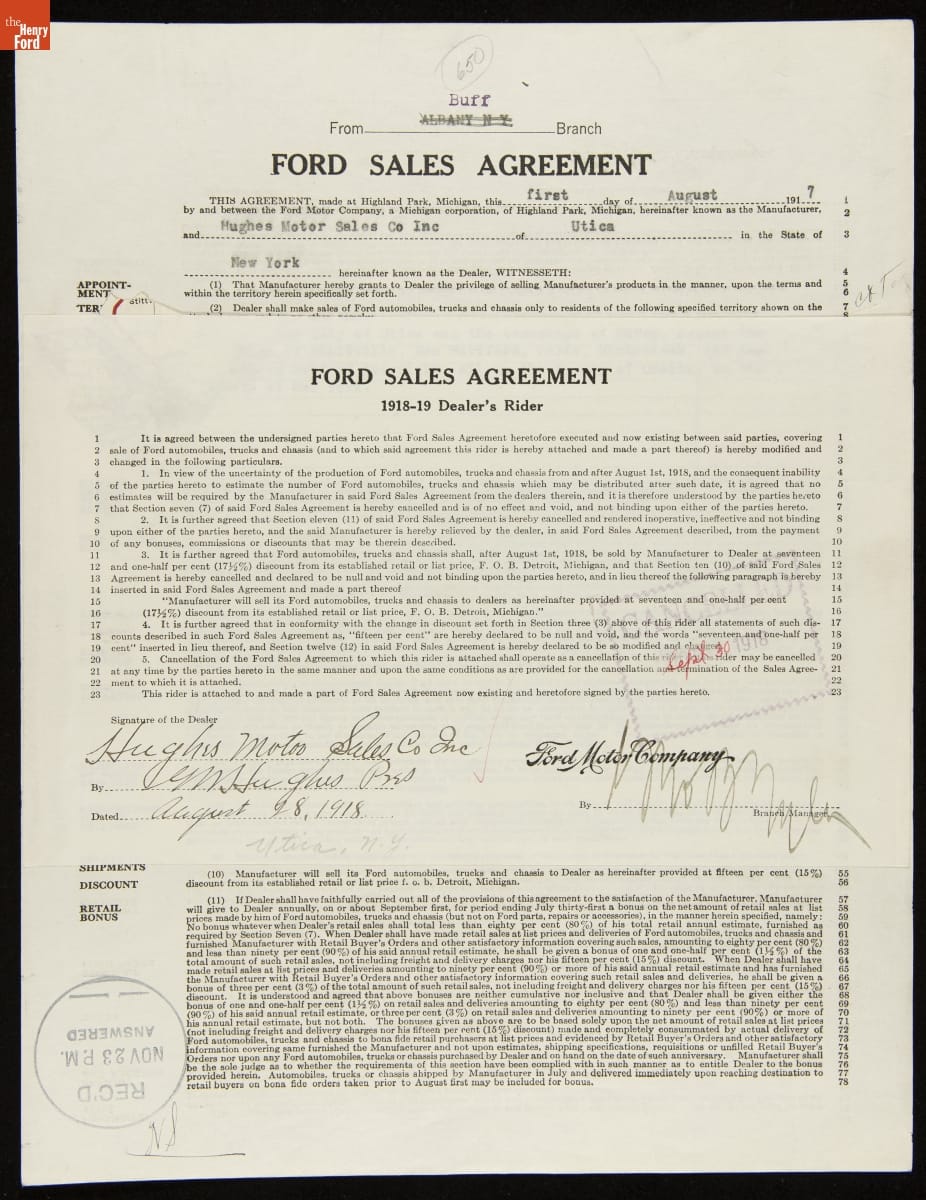 the
Henry
Ford
650
Buff
ALBANY N Y.
From Branch
FORD SALES AGREEMENT
THIS AGREEMENT, made at Highland Park, Michigan, this first day of August 1917 1
by and between the Ford Motor Company, a Michigan corporation, of Highland Park, Michigan, hereinafter known as the Manufacturer, 2
and Hughes Motor Sales Co Inc of Utica in the State of 3
New York hereinafter known as the Dealer, WITNESSETH: 4
APPOINT-
MENT
(1) That Manufacturer hereby grants to Dealer the privilege of selling Manufacturer's products in the manner, upon the terms and 5
within the territory herein specifically set forth. 6
(2) Dealer shall make sales of Ford automobiles, trucks and chassis only to residents of the following specified territory shown on the 7
8
FORD SALES AGREEMENT
1918-19 Dealer's Rider
1 It is agreed between the undersigned parties hereto that Ford Sales Agreement heretofore executed and now existing between said parties, covering 1
2 sale of Ford automobiles, trucks and chassis (and to which said agreement this rider is hereby attached and made a part thereof) is hereby modified and 2
3 changed in the following particulars. 3
4 1. In view of the uncertainty of the production of Ford automobiles, trucks and chassis from and after August 1st, 1918, and the consequent inability 4
5 of the parties hereto to estimate the number of Ford automobiles, trucks and chassis which may be distributed after such date, it is agreed that no 5
6 estimates will be required by the Manufacturer in said Ford Sales Agreement from the dealers therein, and it is therefore understood by the parties hereto 6
7 that Section seven (7) of said Ford Sales Agreement is hereby cancelled and is of no effect and void, and not binding upon either of the parties hereto. 7
8 2. It is further agreed that Section eleven (11) of said Ford Sales Agreement is hereby cancelled and rendered inoperative, ineffective and not binding 8
9 upon either of the parties hereto, and the said Manufacturer is hereby relieved by the dealer, in said Ford Sales Agreement described, from the payment 9
10 of any bonuses, commissions or discounts that may be therein described. 10
11 3. It is further agreed that Ford automobiles, trucks and chassis shall, after August 1st, 1918, be sold by Manufacturer to Dealer at seventeen 11
12 and one-half per cent (17½%) discount from its established retail or list price, F. O. B. Detroit, Michigan, and that Section ten (10) of said Ford Sales 12
13 Agreement is hereby cancelled and declared to be null and void and not binding upon the parties hereto, and in lieu thereof the following paragraph is hereby 13
14 inserted in said Ford Sales Agreement and made a part thereof 14
15 "Manufacturer will sell its Ford automobiles, trucks and chassis to dealers as hereinafter provided at seventeen and one-half per cent 15
16 (17½%) discount from its established retail or list price, F. O. B. Detroit, Michigan." 16
17 4. It is further agreed that in conformity with the change in discount set forth in Section three (3) above of this rider all statements of such dis- 17
18 counts described in such Ford Sales Agreement as, "fifteen per cent" are hereby declared to be null and void, and the words "seventeen and one-half per 18
19 cent" inserted in lieu thereof, and Section twelve (12) in said Ford Sales Agreement is hereby declared to be so modified and changed. 19
20 5. Cancellation of the Ford Sales Agreement to which this rider is attached shall operate as a cancellation of this rider may be cancelled 20
21 at any time by the parties hereto in the same manner and upon the same conditions as are provided for the cancellation and termination of the Sales Agree- 21
22 ment to which it is attached. 22
23 This rider is attached to and made a part of Ford Sales Agreement now existing and heretofore signed by the parties hereto. 23
Sept 30 1918
Signature of the Dealer
Hughes Motor Sales Co Inc
Ford Motor Company
By Hughes Pres
By
Branch Manager
Dated August 28, 1918
Utica, N.Y.
SHIPMENTS
DISCOUNT
(10) Manufacturer will sell its Ford automobiles, trucks and chassis to Dealer as hereinafter provided at fifteen per cent (15%) 55
discount from its established retail or list price f. o. b. Detroit, Michigan. 56
RETAIL
BONUS
(11) If Dealer shall have faithfully carried out all of the provisions of this agreement to the satisfaction of the Manufacturer, Manufacturer 57
will give to Dealer annually, on or about September first, for period ending July thirty-first a bonus on the net amount of retail sales at list 58
prices made by him of Ford automobiles, trucks and chassis (but not on Ford parts, repairs or accessories), in the manner herein specified, namely: 59
No bonus whatever when Dealer's retail sales shall total less than eighty per cent (80%) of his total retail annual estimate, furnished as 60
required by Section Seven (7). When Dealer shall have made retail sales at list prices and deliveries of Ford automobiles, trucks and chassis and 61
furnished Manufacturer with Retail Buyer's Orders and other satisfactory information covering such sales, amounting to eighty per cent (80%) 62
and less than ninety per cent (90%) of his said annual retail estimate, he shall be given a bonus of one and one-half per cent (1½%) of the 63
total amount of such retail sales, not including freight and delivery charges nor his fifteen per cent (15%) discount. When Dealer shall have 64
made retail sales at list prices and deliveries amounting to ninety per cent (90%) or more of his said annual retail estimate and has furnished 65
the Manufacturer with Retail Buyer's Orders and other satisfactory information covering such retail sales and deliveries, he shall be given a 66
bonus of three per cent (3%) of the total amount of such retail sales, not including freight and delivery charges nor his fifteen per cent (15%) 67
discount. It is understood and agreed that above bonuses are neither cumulative nor inclusive and that Dealer shall be given either the 68
bonus of one and one-half per cent (1½%) on retail sales and deliveries amounting to eighty per cent (80%) and less than ninety per cent 69
(90%) of his said annual retail estimate, or three per cent (3%) on retail sales and deliveries amounting to ninety per cent (90%) or more of 70
his annual retail estimate, but not both. The bonuses given above are to be based solely upon the net amount of retail sales at list prices 71
(not including freight and delivery charges nor his fifteen per cent (15%) discount) made and completely consummated by actual delivery of 72
Ford automobiles, trucks and chassis to bona fide retail purchasers at list prices and evidenced by Retail Buyer's Orders and other satisfactory 73
information covering same furnished the Manufacturer and not upon estimates, shipping specifications, requisitions or unfilled Retail Buyer's 74
Orders nor upon any Ford automobiles, trucks or chassis purchased by Dealer and on hand on the date of such anniversary. Manufacturer shall 75
be the sole judge as to whether the requirements of this section have been complied with in such manner as to entitle Dealer to the bonus 76
provided herein. Automobiles, trucks or chassis shipped by Manufacturer in July and delivered immediately upon reaching destination to 77
retail buyers on bona fide orders taken prior to August first may be included for bonus. 78
REC'D
NOV 23 P.M.
ANSWERED